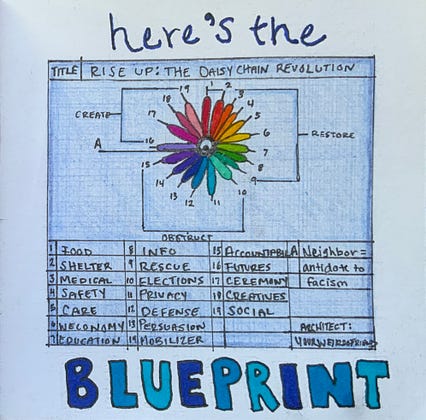 here's the
TITLE RISE UP: THE DAISY CHAIN REVOLUTION
CREATE
RESTORE
OBSTRUCT
A
1 2 3 4 5 6 7 8 9 10 11 12 13 14 15 16 17 18 19
1 FOOD 8 INFO 15 ACCOUNTABIL A Neighbor =
2 SHELTER 9 RESCUE 16 FUTURES antidote to
3 MEDICAL 10 ELECTIONS 17 CEREMONY facism
4 SAFETY 11 PRIVACY 18 CREATIVES
5 CARE 12 DEFENSE 19 SOCIAL
6 WECONOMY 13 PERSUASION ARCHITECT:
7 EDUCATION 14 MOBILIZER
BLUEPRINT